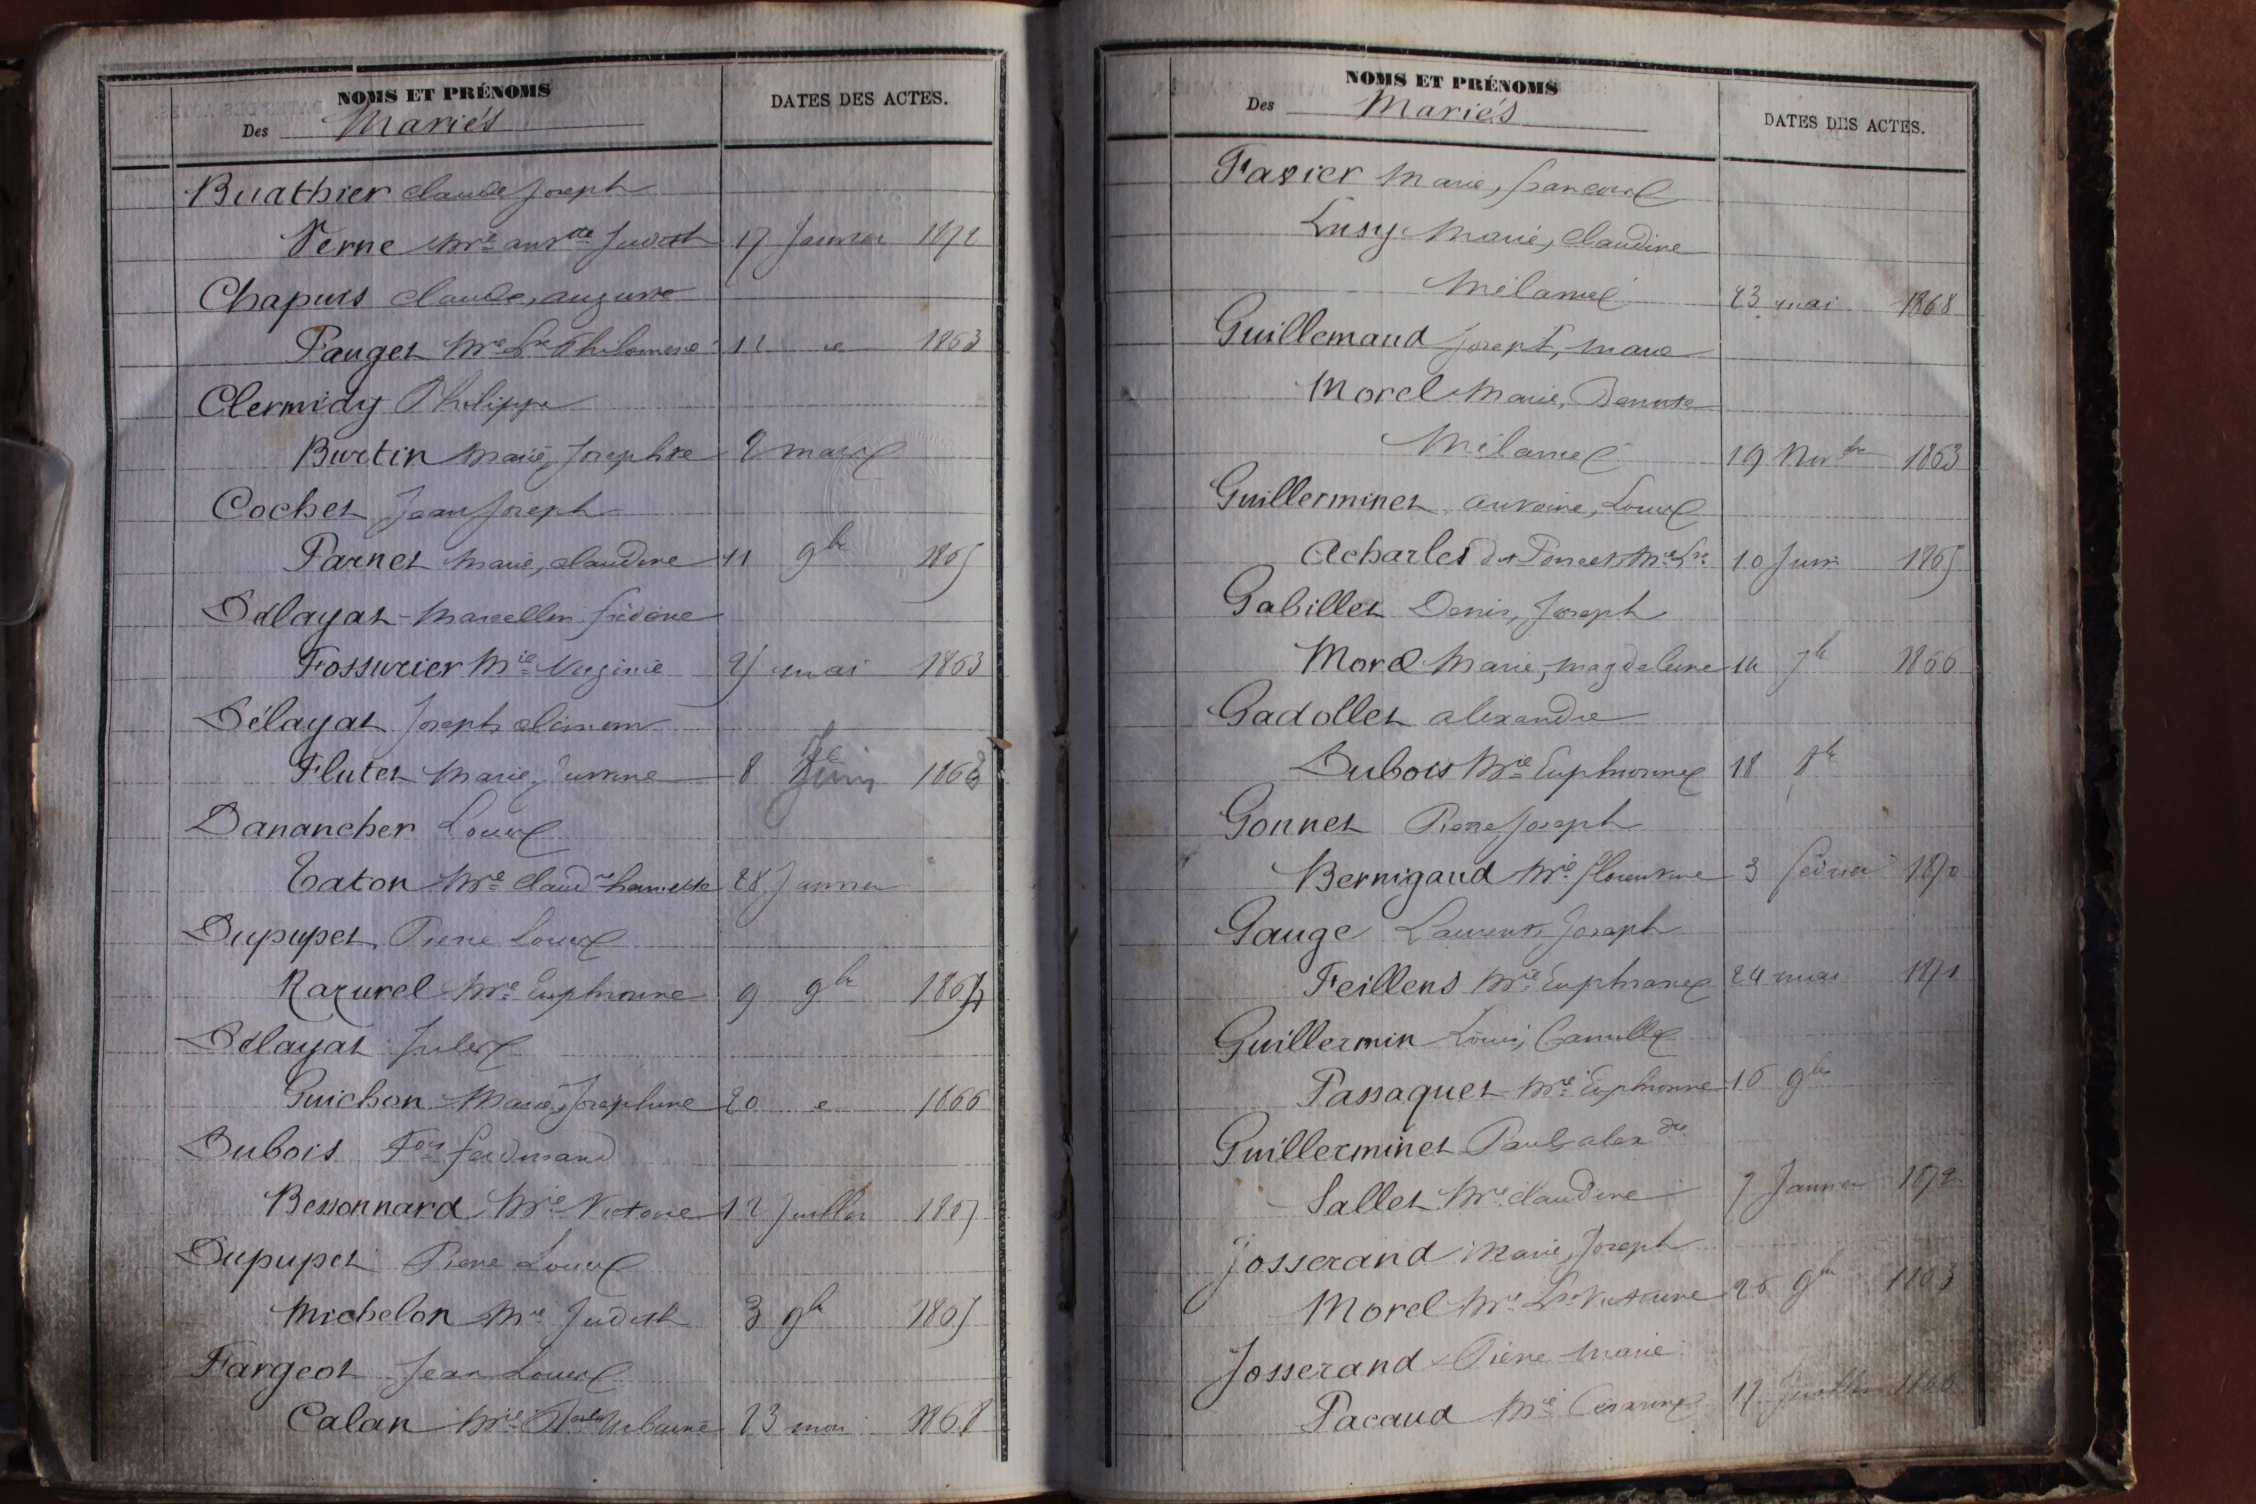 NOMS ET PRÉNOMS
Des Mariés
DATES DES ACTES.
Buathier Claude Joseph
Verne Mie Antte Judith 17 Janvier 1872
Chapuis Claude, Auguste
Pauget Mie Lse Philomène 11 1863
Clermidy Philippe
Burtin Marie, Josephte 2 mars
Cochet Jean Joseph
Parnet Marie, Claudine 11 9bre 1865
Délayat Marcellin
Fossurier Mie Virginie 25 mai 1863
Délayat Joseph Clément
Flutet Marie 8 1868
Danancher Louis
Taton Mie Claudne 28 Janvier
Dupupet Pierre Louis
Razurel Mie Euphrosine 9 9bre 1864
Délayat Jules
Guichon Marie, Josephine 20 1866
Dubois Fois Ferdinand
Bessonnard Mie Victoire 12 Juillet 1865
Dupupet Pierre Louis
Michelon Mie Judith 3 9bre 1865
Fargeot Jean Louis
Calan Mie Urbaine 23 mai 1868
NOMS ET PRÉNOMS
Des Mariés
DATES DES ACTES.
Favier Marie, François
Lusy Marie, Claudine
Mélanie 23 mai 1868
Guillemaud Joseph, Marie
Morel Marie, Denise
Mélanie 19 Novbre 1863
Guillerminet Antoine, Louis
Acharles dit Poncet Mie Lse 10 Juin 1865
Gabillet Denis, Joseph
Morel Marie, Magdeleine 14 7bre 1866
Gadollet Alexandre
Dubois Mie Euphrosine 18 8bre
Gonnet Pierre Joseph
Bernigaud Mie Florentine 3 février 1870
Gauge Laurent, Joseph
Feillens Mie Euphrasie 24 mai 1871
Guillermin Louis, Camille
Passaquet Mie Euphrosine 16 9bre
Guillerminet Paul, Alexdre
Sallet Mie Claudine 7 Janvier 1872
Josserand Marie, Joseph
Morel Mie Lse Victorine 26 9bre 1863
Josserand Pierre Marie
Pacaud Mie Césarine 17 Juillet 1866